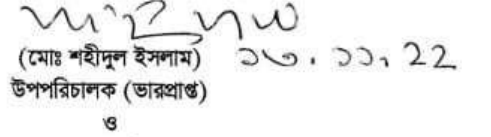 (মোঃ শহীদুল ইসলাম) ১৩.১১.22
উপপরিচালক (ভারপ্রাপ্ত)
ও